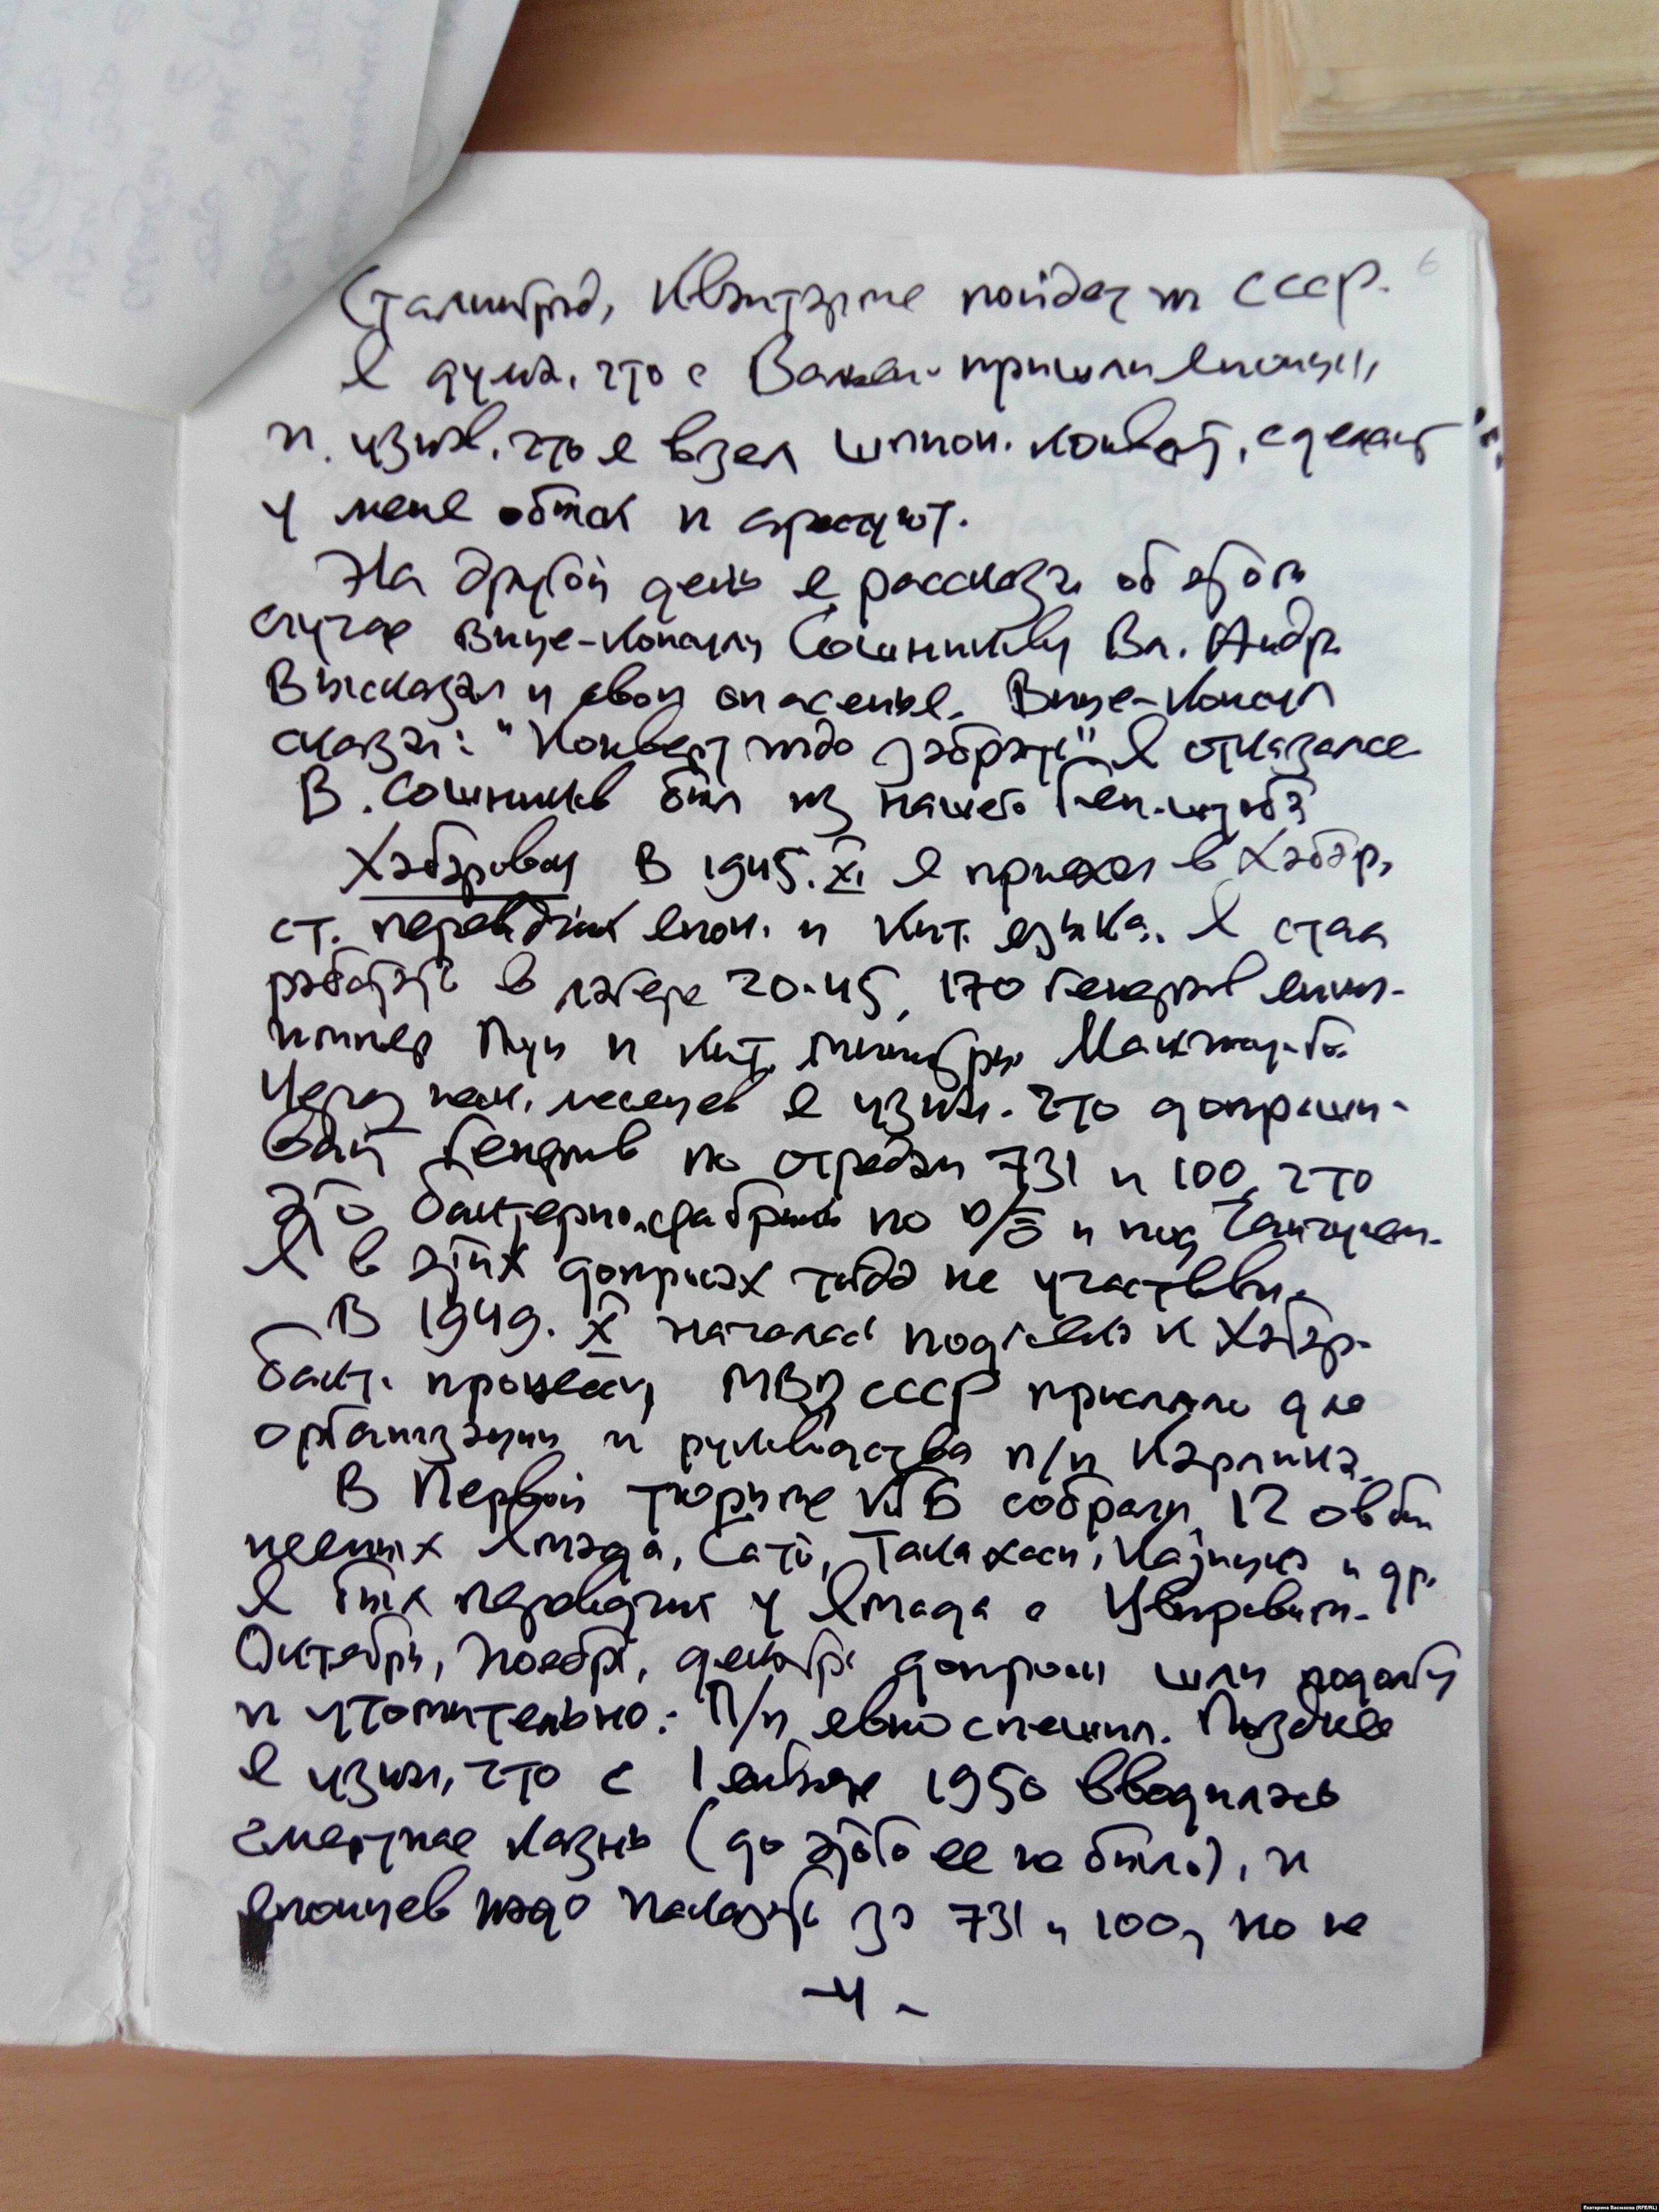 6
Сталинград, Квантуны пойдет на СССР.
Я думал, что с Ваней пришли японцы,
и, узнав, что я взял шпион. конверт, сделают
у меня обыск и арестуют.
На другой день я рассказал об этом
случае вице-консулу Сошникову Вл. Андр.
Высказал и свои опасенья. Вице-консул
сказал: "Конверт надо забрать" Я отказался
В. Сошников был из нашего Ген. штаба
Хабаровск В 1945. XI я приехал в Хабар,
ст. переводчик япон. и кит. языка. Я стал
работать в лагере 20-45, 170 генералов япон.
импер Пу и и кит. министры Маньчжу-го.
Через неск. месяцев я узнал. что допраши-
вают генералов по отрядам 731 и 100, что
это бактериол. фабрики по и под Чанчунем.
Я в этих допросах тогда не участвовал.
В 1949. X началась подготовка к Хабар.
бакт. процессу, МВД СССР прислало для
организации и руководства п/п Карлина.
В Первой тюрьме КГБ собрали 12 обви
няемых Ямада, Сато, Такахаси, Кадзицка и др.
Я был переводчик у Ямада с
Октябрь, ноябрь, декабрь допросы шли подолгу
и утомительно. П/п явно спешил. Позднее
я узнал, что с 1 января 1950 вводилась
смертная казнь (до этого ее не было), и
японцев надо наказать за 731 и 100, но не
-4-
Екатерина Васюкова (RFE/RL)